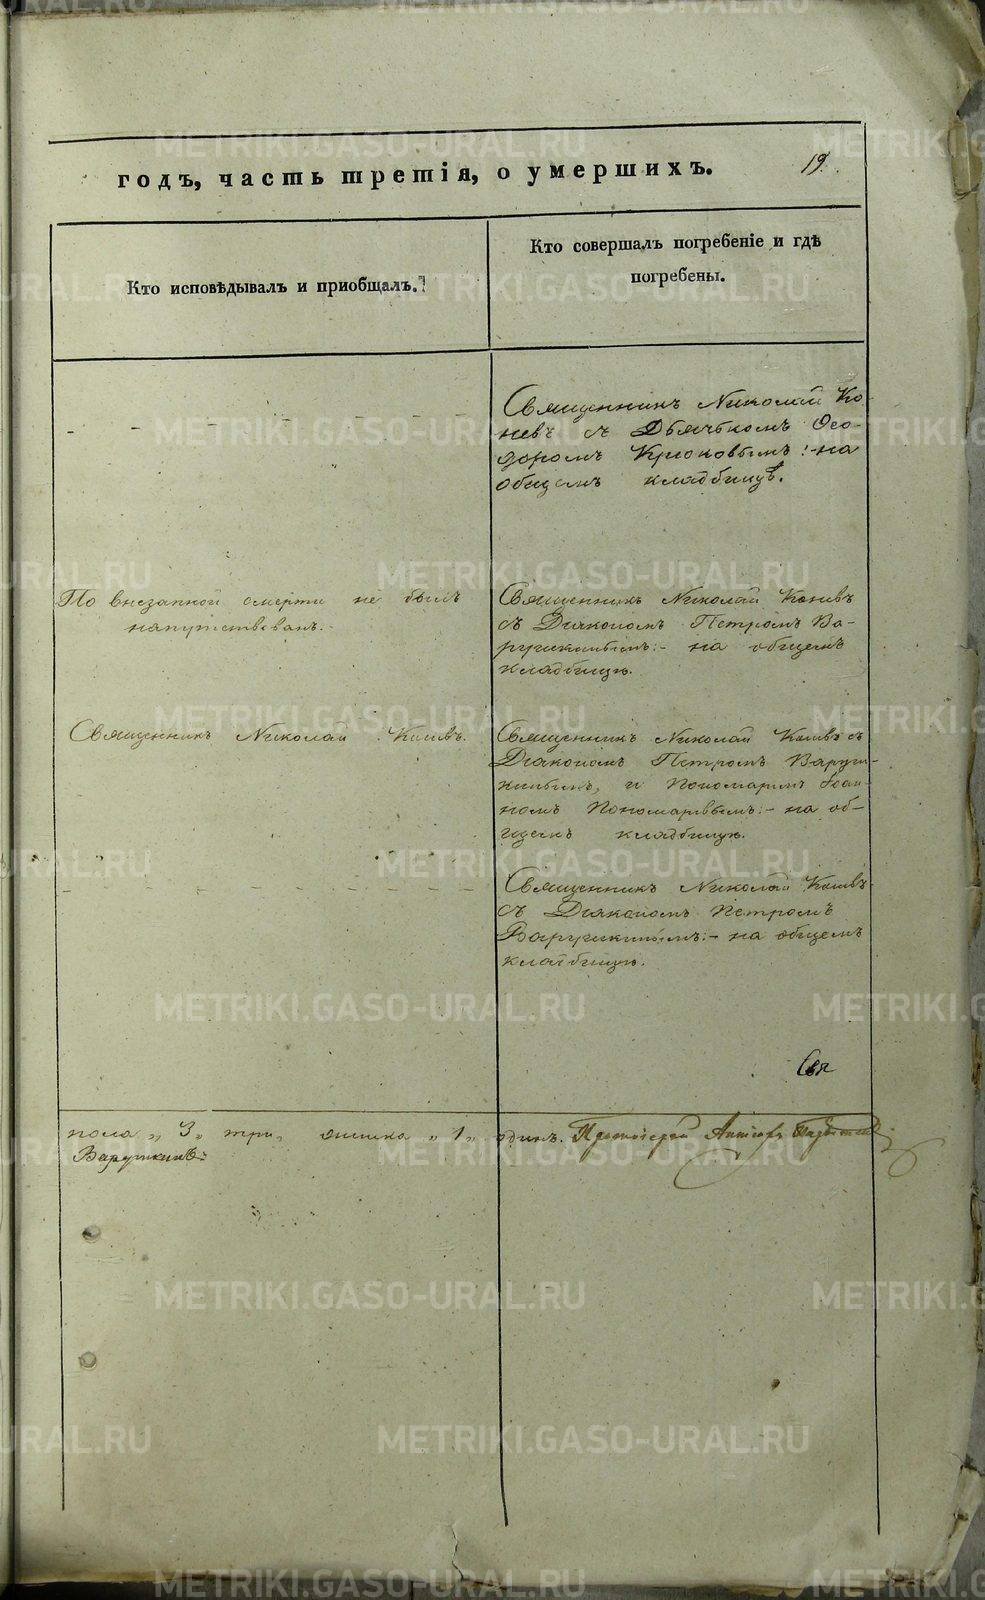 годъ, часть третія, о умершихъ.
19.
Кто исповѣдывалъ и приобщалъ.
Кто совершалъ погребеніе и гдѣ
погребены.
Священникъ Николай Ко-
невъ съ Дьячкомъ Ѳео-
доромъ Крюковымъ:-на
общемъ кладбищѣ.
По внезапной смерти не былъ
напутствованъ.
Священникъ Николай Коневъ
съ Діакономъ Петромъ Ва-
рушкинымъ:- на общемъ
кладбищѣ.
Священникъ Николай Коневъ.
Священникъ Николай Коневъ съ
Діакономъ Петромъ Варуш-
кинымъ, и Пономаремъ Іоан-
номъ Пономаревымъ:- на об-
щемъ кладбищѣ.
Священникъ Николай Коневъ
съ Діакономъ Петромъ
Варушкинымъ:- на общемъ
кладбищѣ.
Свя
пола „ 3 „ три, „ 1 „ одинъ. Протоіерей
Варушкинъ
METRIKI.GASO-URAL.RU